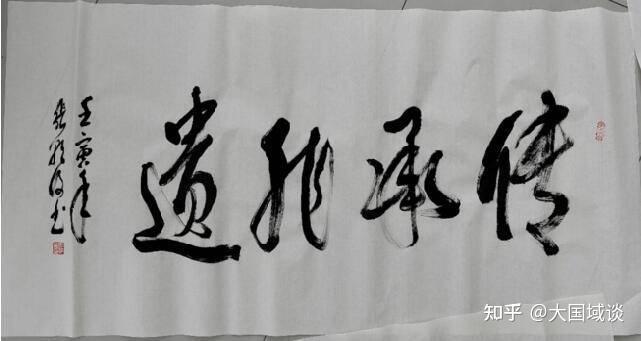 傳承非遺
壬寅年
书
知乎 @大国域谈